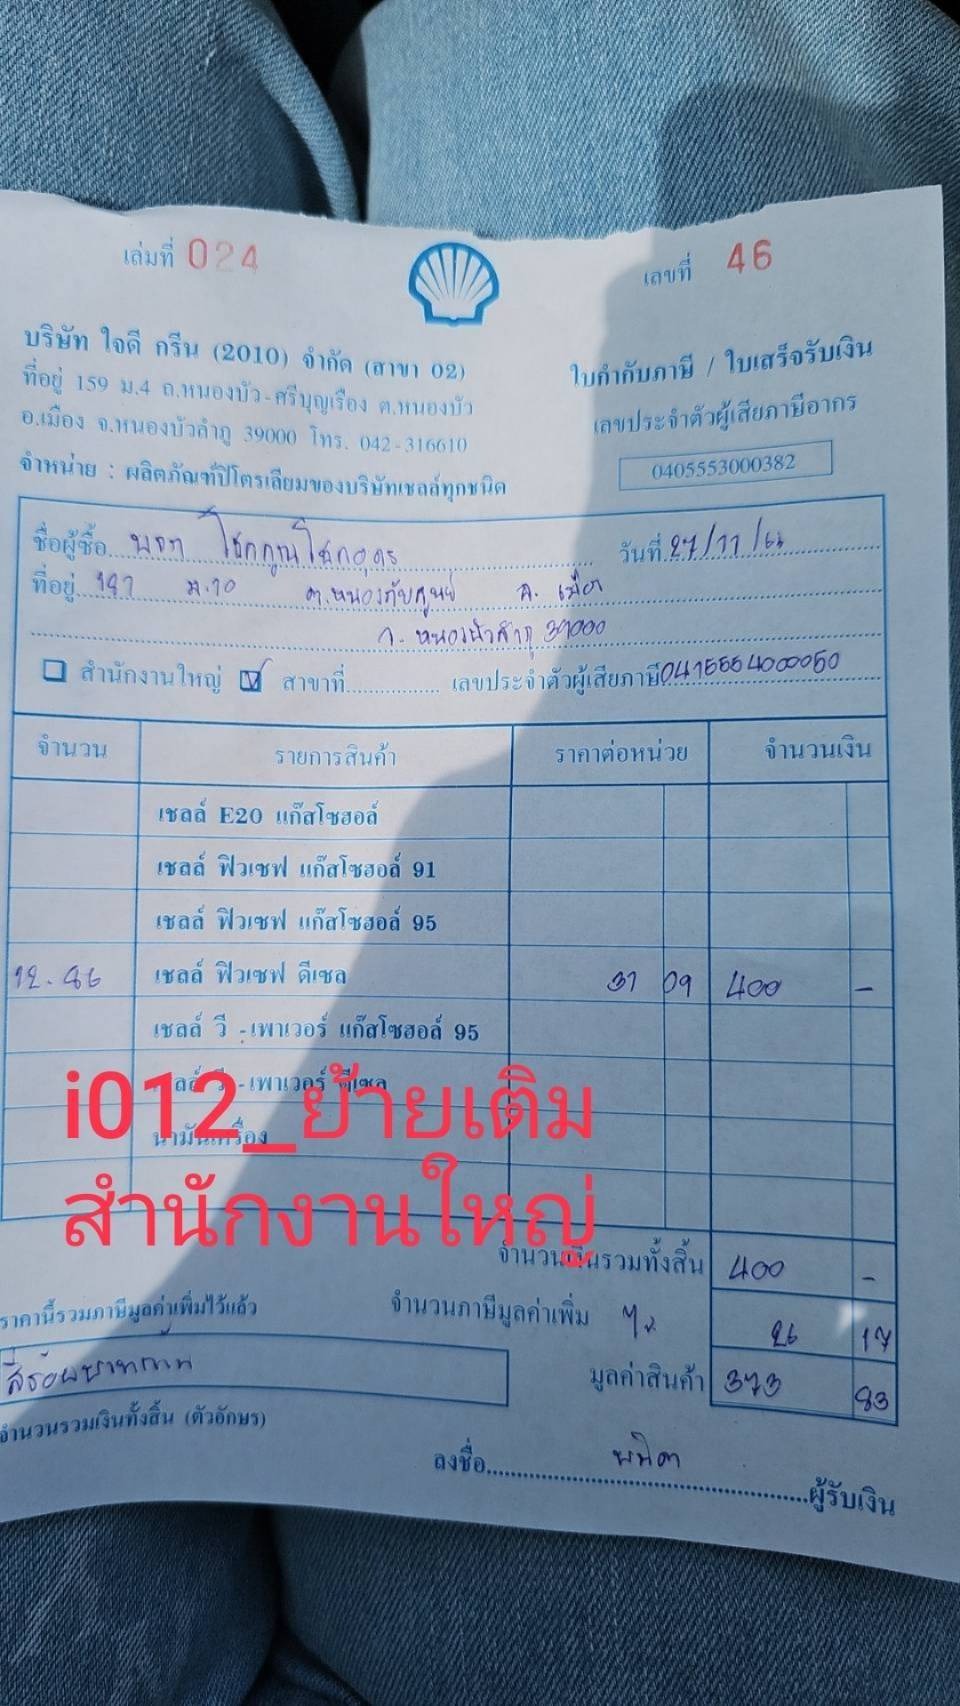 เล่มที่ 024
เลขที่ 46
บริษัท ใจดี กรีน (2010) จำกัด (สาขา 02)
ที่อยู่ 159 ม.4 ถ.หนองบัว-ศรีบุญเรือง ต.หนองบัว
อ.เมือง จ.หนองบัวลำภู 39000 โทร. 042-316610
จำหน่าย : ผลิตภัณฑ์ปิโตรเลียมของบริษัทเชลล์ทุกชนิด
ใบกำกับภาษี / ใบเสร็จรับเงิน
เลขประจำตัวผู้เสียภาษีอากร
0405553000382
ชื่อผู้ซื้อ
วันที่ 27/11/
ที่อยู่ ม.10 อ. เมือง
จ. หนองบัวลำภู 39000
สำนักงานใหญ่ สาขาที่ เลขประจำตัวผู้เสียภาษี
จำนวน รายการสินค้า ราคาต่อหน่วย จำนวนเงิน
เชลล์ E20 แก๊สโซฮอล์
เชลล์ ฟิวเซฟ แก๊สโซฮอล์ 91
เชลล์ ฟิวเซฟ แก๊สโซฮอล์ 95
12.86 เชลล์ ฟิวเซฟ ดีเซล 31 09 400 -
เชลล์ วี -เพาเวอร์ แก๊สโซฮอล์ 95
เชลล์ วี -เพาเวอร์ ดีเซล
น้ำมันเครื่อง
i012_ย้ายเติม
สำนักงานใหญ่
จำนวนเงินรวมทั้งสิ้น 400 -
ราคานี้รวมภาษีมูลค่าเพิ่มไว้แล้ว
จำนวนภาษีมูลค่าเพิ่ม 7% 26 17
สี่ร้อยบาทถ้วน
มูลค่าสินค้า 373 83
จำนวนรวมเงินทั้งสิ้น (ตัวอักษร)
ลงชื่อ พนิดา ผู้รับเงิน